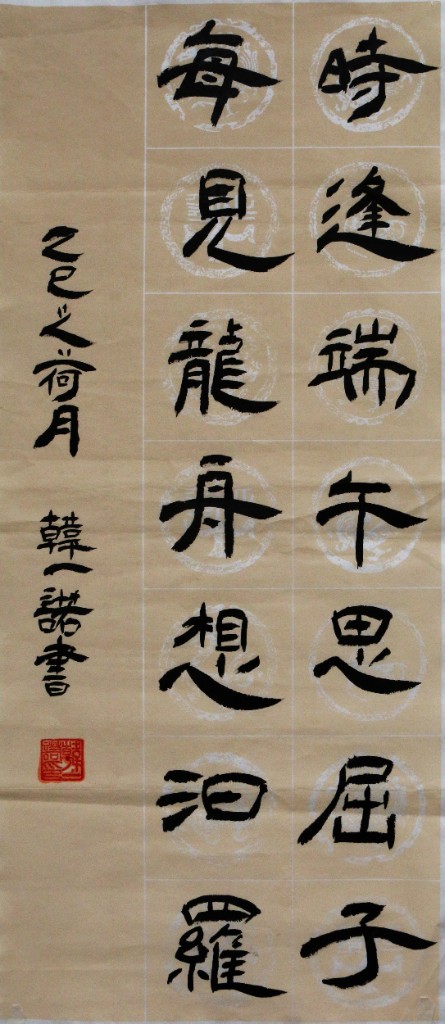 時逢端午思屈子
每見龍舟想汨羅
乙巳之荷月 韓一諾書